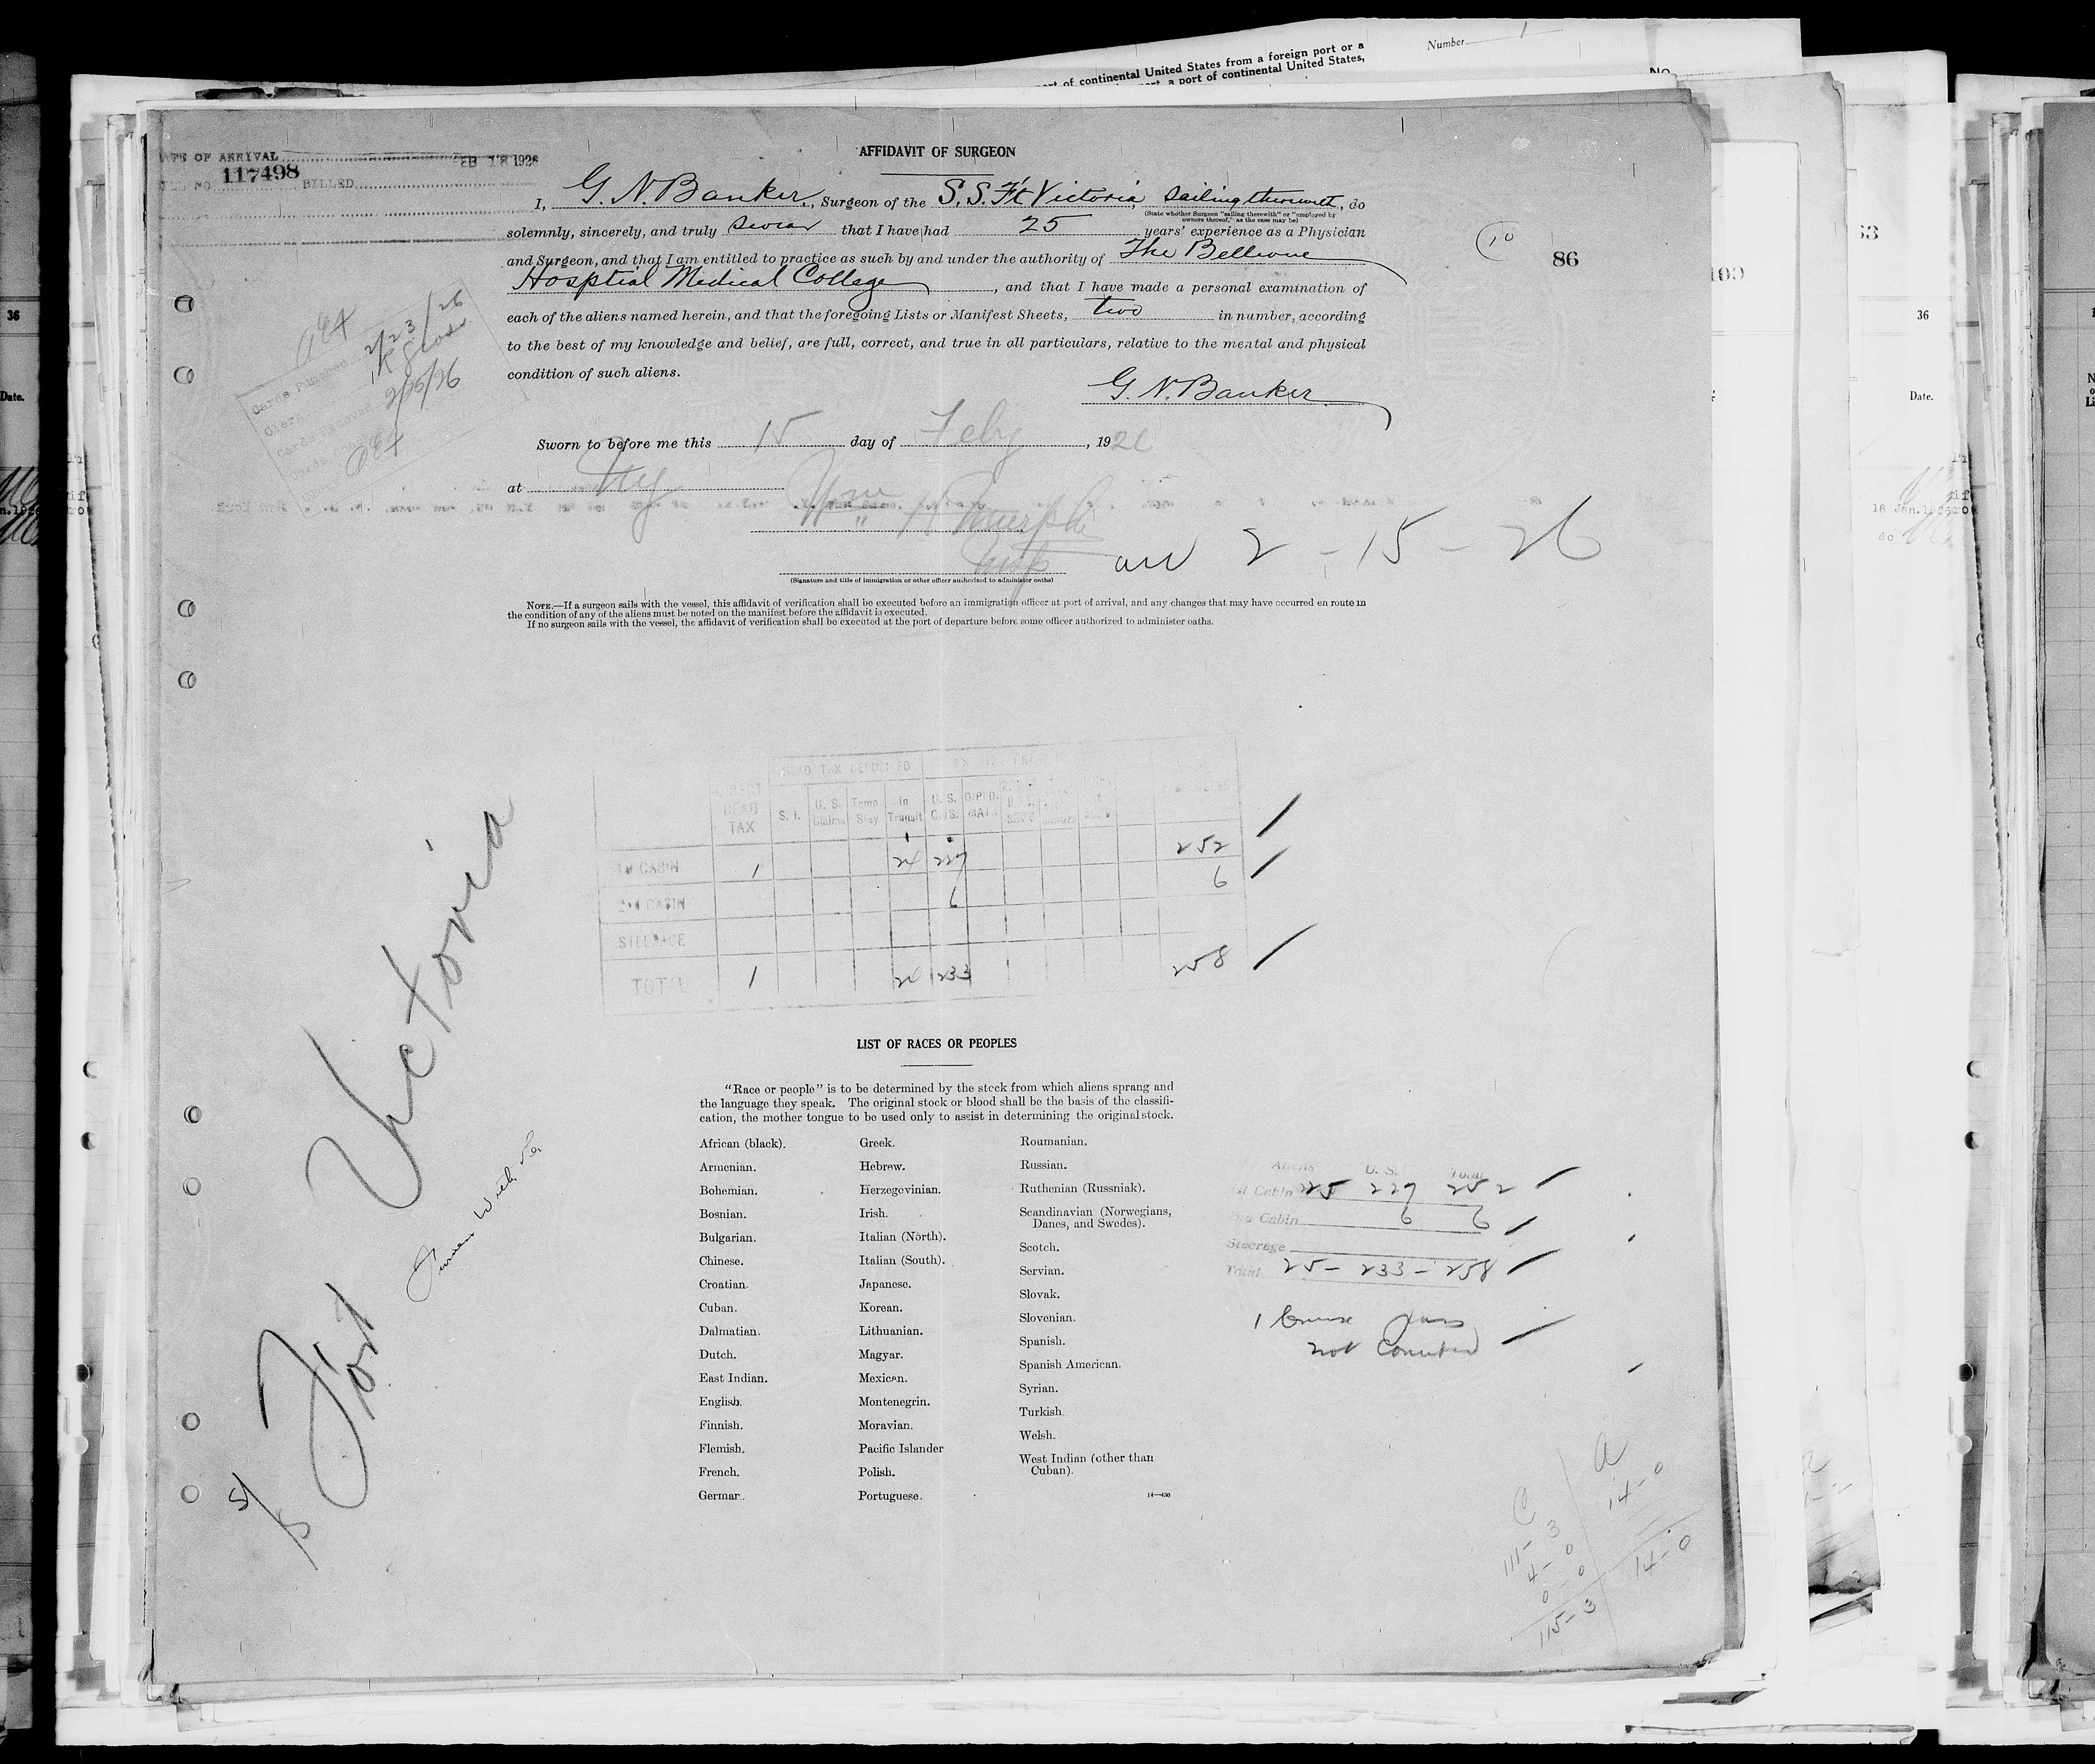 Number
rt of continental United States from a foreign port or a
ort, a port of continental United States,
No.
OF ARRIVAL FEB 18 1926
NO. 117498 BILLED
AFFIDAVIT OF SURGEON
I, G. N. Banker, Surgeon of the S.S. Ft Victoria, sailing therewith, do
(State whether Surgeon "sailing therewith" or "employed by
owners thereof," as the case may be)
solemnly, sincerely, and truly swear that I have had 25 years' experience as a Physician
and Surgeon, and that I am entitled to practice as such by and under the authority of The Bellevue
Hosptial Medical College, and that I have made a personal examination of
each of the aliens named herein, and that the foregoing Lists or Manifest Sheets, two in number, according
to the best of my knowledge and belief, are full, correct, and true in all particulars, relative to the mental and physical
condition of such aliens.
G. N. Banker
10
86
Cards Punched 2/23/26
Clerk
2/25/26
Sworn to before me this 15 day of Feby, 1926
at NY
Wm H Murphy
Insp
arr 2-15-26
(Signature and title of immigration or other officer authorized to administer oaths)
NOTE.—If a surgeon sails with the vessel, this affidavit of verification shall be executed before an immigration officer at port of arrival, and any changes that may have occurred en route in
the condition of any of the aliens must be noted on the manifest before the affidavit is executed.
If no surgeon sails with the vessel, the affidavit of verification shall be executed at the port of departure before some officer authorized to administer oaths.
HEAD TAX DEPOSITED
HEAD TAX S. I. U. S. Claims Temp. Stay In Transit U. S. CITS. DIPLO-MATS
1st CABIN 1 24 227 252
2nd CABIN 6 6
STEERAGE
TOTAL 1 24 233 258
Fort Victoria
LIST OF RACES OR PEOPLES
"Race or people" is to be determined by the stock from which aliens sprang and
the language they speak. The original stock or blood shall be the basis of the classifi-
cation, the mother tongue to be used only to assist in determining the original stock.
African (black).
Armenian.
Bohemian.
Bosnian.
Bulgarian.
Chinese.
Croatian.
Cuban.
Dalmatian.
Dutch.
East Indian.
English.
Finnish.
Flemish.
French.
German.
Greek.
Hebrew.
Herzegovinian.
Irish.
Italian (North).
Italian (South).
Japanese.
Korean.
Lithuanian.
Magyar.
Mexican.
Montenegrin.
Moravian.
Pacific Islander
Polish.
Portuguese.
Roumanian.
Russian.
Ruthenian (Russniak).
Scandinavian (Norwegians,
Danes, and Swedes).
Scotch.
Servian.
Slovak.
Slovenian.
Spanish.
Spanish American.
Syrian.
Turkish.
Welsh.
West Indian (other than
Cuban).
14—430
Aliens U. S. Total
1st Cabin 25 227 252
2nd Cabin 6 6
Steerage
Total 25 – 233 – 258
1 Cruise pass
not counted
C
111-3
4-0
0-0
115-3
a
14-0
14-0
36
Date.
18 Jan. 1926
do